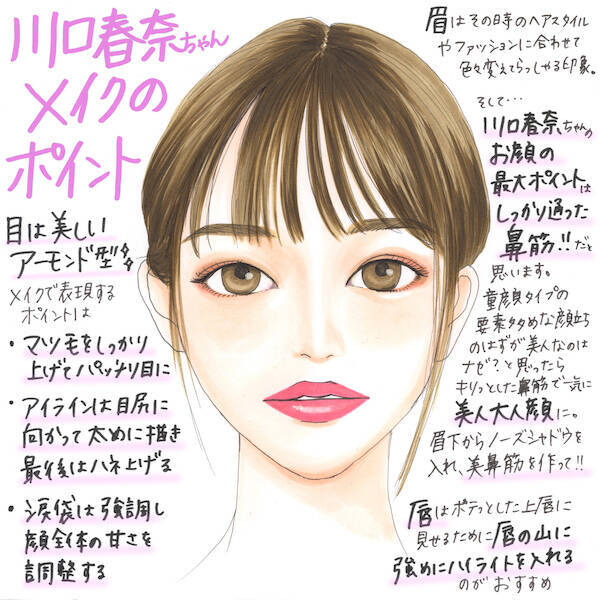 川口春奈ちゃん
メイクの
ポイント
目は美しい
アーモンド型
メイクで表現する
ポイントは
・マツモをしっかり
上げてパッチリ目に
・アイラインは目尻に
向かって太めに描き
最後はハネ上げる
・涙袋は強調し
顔全体の甘さを
調整する
眉はその日時のヘアスタイル
やファッションに合わせて
色を変えてらっしゃる印象。
そして…
川口春奈ちゃんの
お顔の
最大ポイントは
しっかり通った
鼻筋!!だと
思います。
童顔タイプの
要素多めな顔立ち
のはずが美人なのは
ナゼ?と思ったら
キリッとした鼻筋で一気に
美人大人顔に。
眉下からノーズシャドウを
入れ、美鼻筋を作って!!
唇はボテッとした上唇に
見せるために唇の山に
強めにハイライトを入れる
のがおすすめ